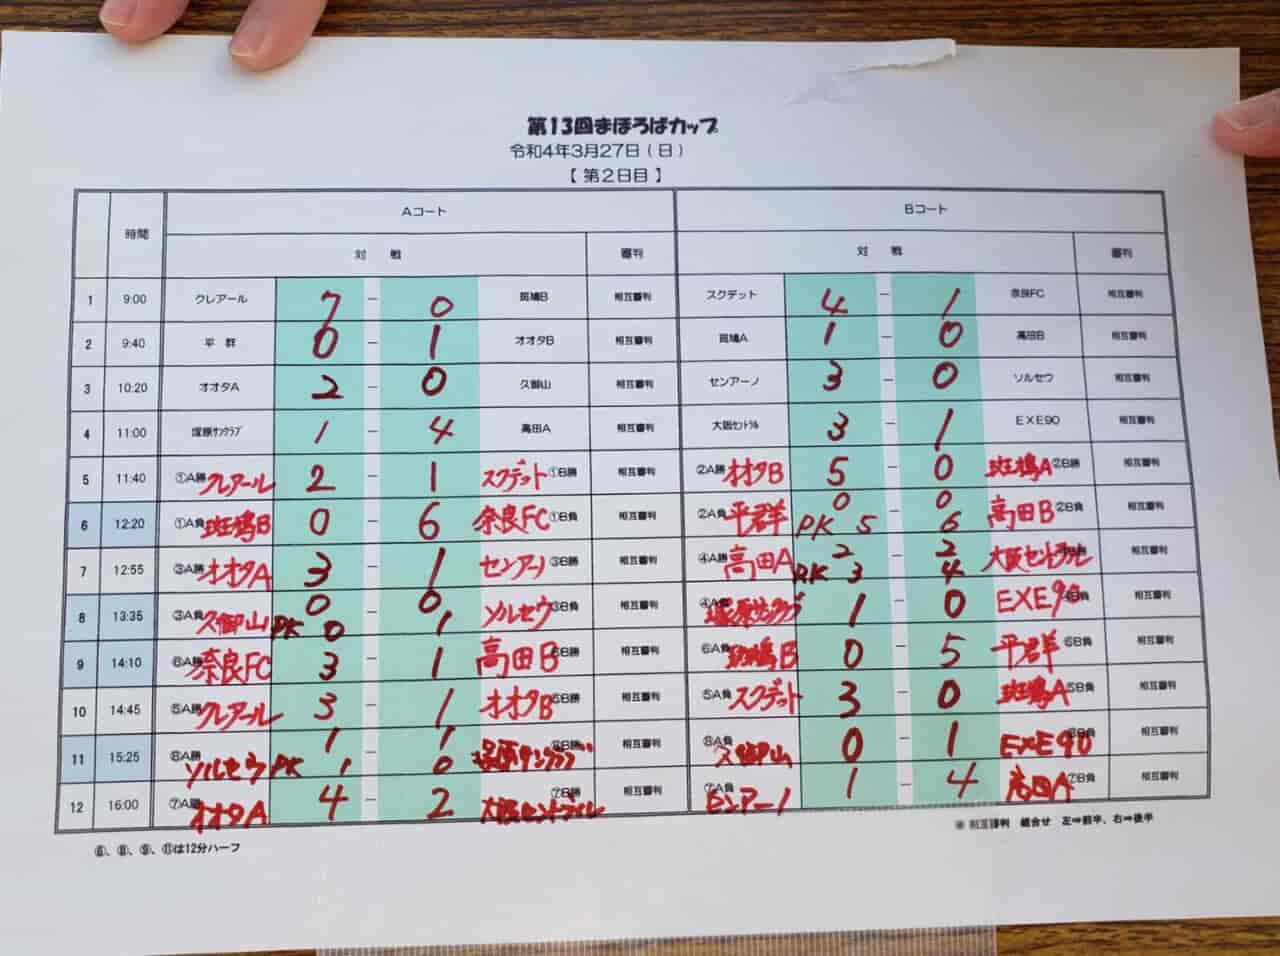 第13回まほろばカップ
令和4年3月27日(日)
【 第2日目 】
時間 Aコート Bコート
対 戦 審判 対 戦 審判
1 9:00 クレアール 7 - 0 斑鳩B 相互審判 スクデット 4 - 1 奈良FC 相互審判
2 9:40 平 群 0 - 1 オオタB 相互審判 斑鳩A 1 - 0 高田B 相互審判
3 10:20 オオタA 2 - 0 久御山 相互審判 センアーノ 3 - 0 ソルセウ 相互審判
4 11:00 塚原サンクラブ 1 - 4 高田A 相互審判 大阪セントラル 3 - 1 EXE90 相互審判
5 11:40 ①A勝 クレアール 2 - 1 スクデット ①B勝 相互審判 ②A勝 オオタB 5 - 0 斑鳩A ②B勝 相互審判
6 12:20 ①A負 斑鳩B 0 - 6 奈良FC ①B負 相互審判 ②A負 平群 0 - 0 PK 5 6 高田B ②B負 相互審判
7 12:55 ③A勝 オオタA 3 - 1 センアーノ ③B勝 相互審判 ④A勝 高田A 2 - 2 PK 3 4 大阪セントラル 相互審判
8 13:35 ③A負 久御山 0 - 0 PK 0 1 ソルセウ ③B負 相互審判 ④A負 塚原サンクラブ 1 - 0 EXE90 ④B負 相互審判
9 14:10 ⑥A勝 奈良FC 3 - 1 高田B ⑥B勝 相互審判 ⑥A負 斑鳩B 0 - 5 平群 ⑥B負 相互審判
10 14:45 ⑤A勝 クレアール 3 - 1 オオタB ⑤B勝 相互審判 ⑤A負 スクデット 3 - 0 斑鳩A ⑤B負 相互審判
11 15:25 ⑧A勝 ソルセウ 1 - 1 PK 1 0 塚原サンクラブ ⑧B勝 相互審判 ⑧A負 久御山 0 - 1 EXE90 ⑧B負 相互審判
12 16:00 ⑦A勝 オオタA 4 - 2 大阪セントラル ⑦B勝 相互審判 ⑦A負 センアーノ 1 - 4 高田A ⑦B負 相互審判
⑥、⑧、⑨、⑪は12分ハーフ
※ 相互審判 組合せ 左⇒前半、右⇒後半